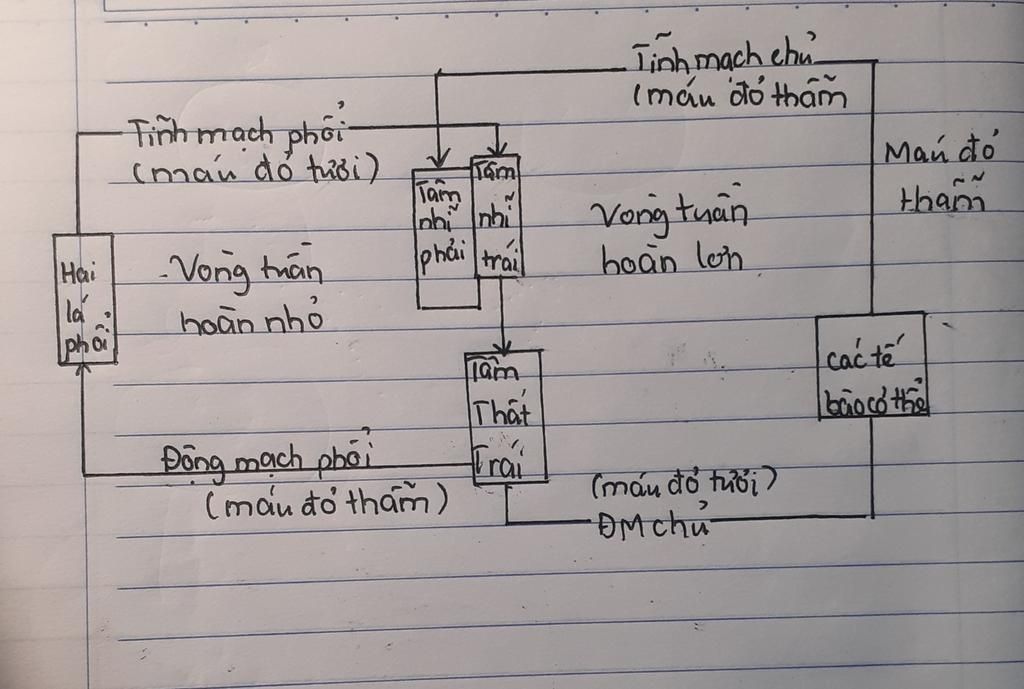 Tĩnh mạch chủ
(máu đỏ thẫm
Tĩnh mạch phổi
(máu đỏ tươi)
Máu đỏ
thẫm
Tâm
nhĩ
phải
Tâm
nhĩ
trái
Vòng tuần
hoàn lớn
Hai
lá
phổi
- Vòng tuần
hoàn nhỏ
các tế
bào cơ thể
Tâm
Thất
Trái
Động mạch phổi
(máu đỏ thẫm)
(máu đỏ tươi)
ĐM chủ